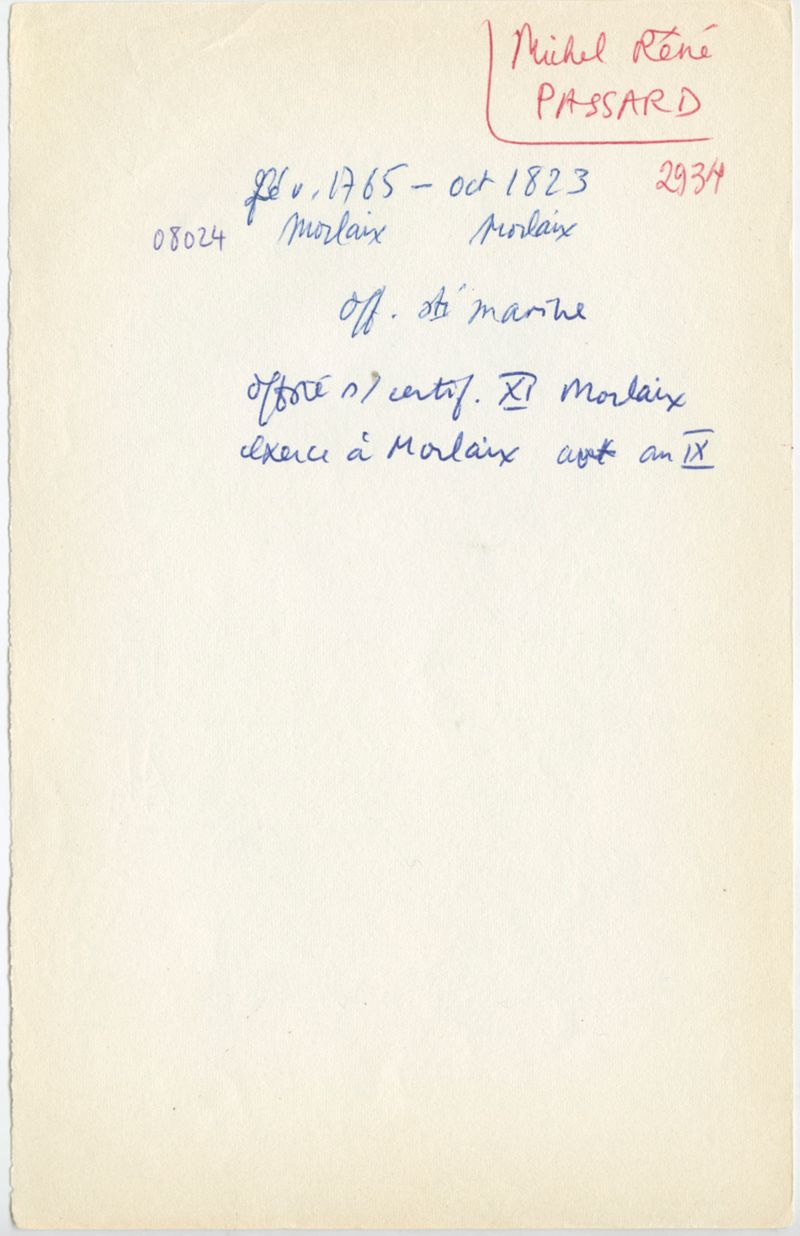 Michel Réné
PASSARD
fév. 1765 - oct 1823 2934
08024 Morlaix Morlaix
off. sté marine
off sté s/ certif. XI Morlaix
exerce à Morlaix avt an IX